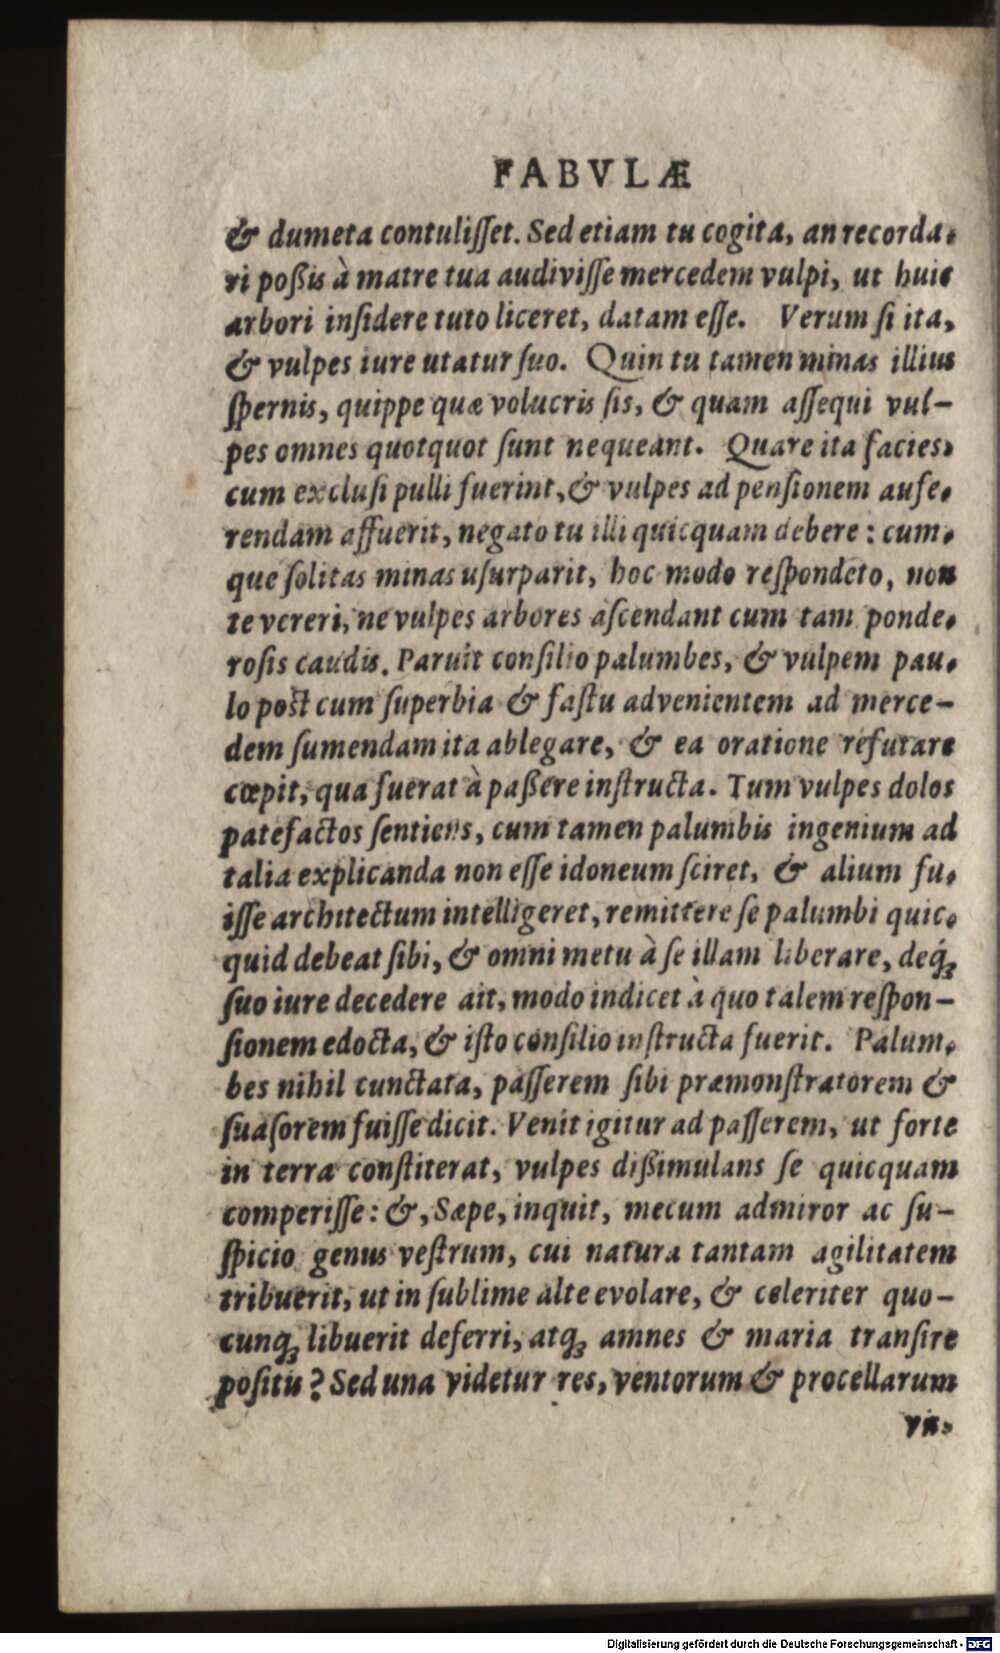 FABVLÆ
& dumeta contulisset. Sed etiam tu cogita, an recorda-
ri poßis à matre tua audivisse mercedem vulpi, ut huic
arbori insidere tuto liceret, datam esse. Verum si ita,
& vulpes iure utatur suo. Quin tu tamen minas illius
spernis, quippe quæ volucris sis, & quam assequi vul-
pes omnes quotquot sunt nequeant. Quare ita facies,
cum exclusi pulli fuerint, & vulpes ad pensionem aufe-
rendam affuerit, negato tu illi quicquam debere: cum-
que solitas minas usurparit, hoc modo respondeto, non
te vereri, ne vulpes arbores ascendant cum tam ponde-
rosis caudis. Paruit consilio palumbes, & vulpem pau-
lo pòst cum superbia & fastu advenientem ad merce-
dem sumendam ita ablegare, & ea oratione refutare
cœpit, qua fuerat à paßere instructa. Tum vulpes dolos
patefactos sentiens, cum tamen palumbis ingenium ad
talia explicanda non esse idoneum sciret, & alium fu-
isse architectum intelligeret, remittere se palumbi quic-
quid debeat sibi, & omni metu à se illam liberare, deq́;
suo iure decedere ait, modo indicet à quo talem respon-
sionem edocta, & isto consilio instructa fuerit. Palum-
bes nihil cunctata, passerem sibi præmonstratorem &
suasorem fuisse dicit. Venit igitur ad passerem, ut forte
in terra constiterat, vulpes dißimulans se quicquam
comperisse: &, Sæpe, inquit, mecum admiror ac su-
spicio genus vestrum, cui natura tantam agilitatem
tribuerit, ut in sublime alte evolare, & celeriter quo-
cunq; libuerit deferri, atq; amnes & maria transire
positis? Sed una videtur res, ventorum & procellarum
Digitalisierung gefördert durch die Deutsche Forschungsgemeinschaft - DFG